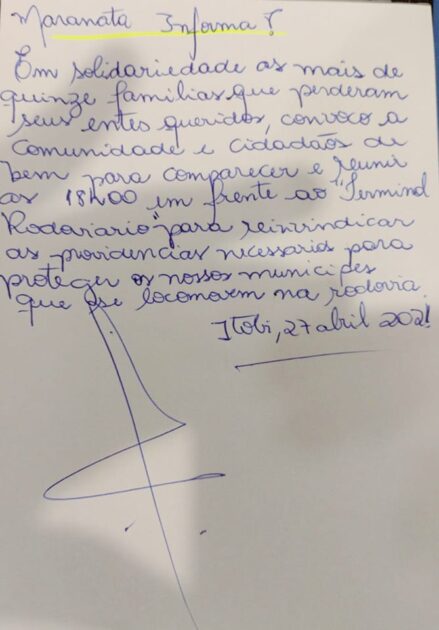 Maranata Informa!
Em solidariedade as mais de
quinze familias que perderam
seus entes queridos, convoco a
Comunidade e cidadãos de
bem para comparecer e reunir
as 18h00 em frente ao "Terminal
Rodoviario" para reivindicar
as providencias necessarias para
proteger os nossos municipes
que se locomovem na rodovia.
Itobi, 27 abril 2021